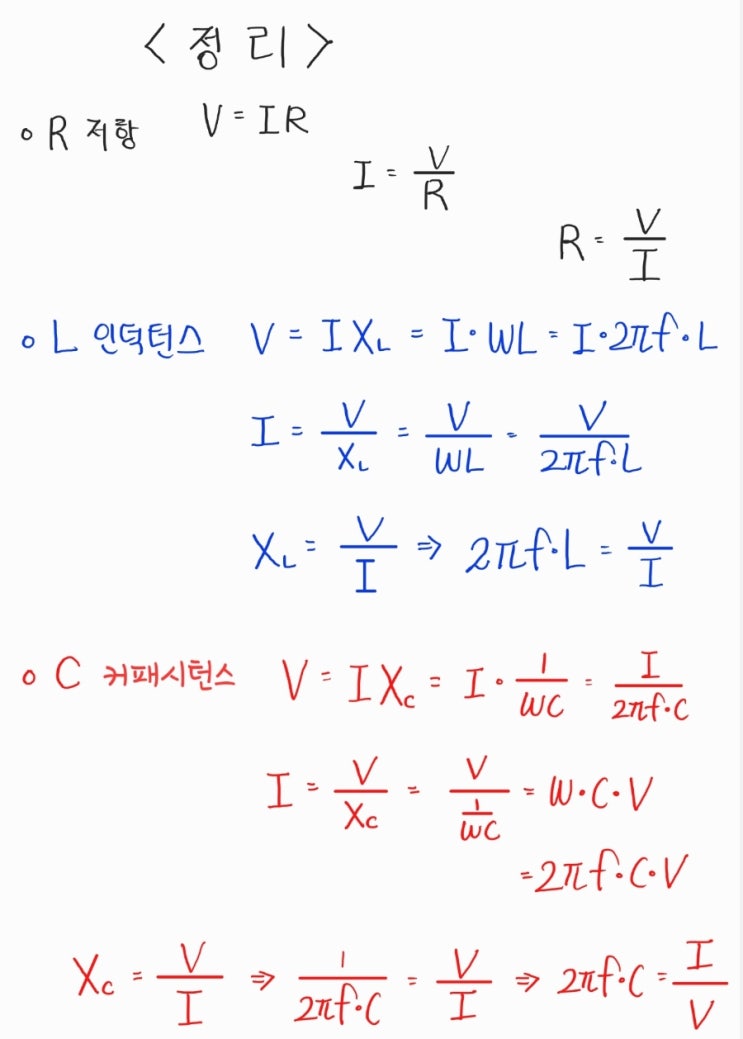 <정리>
◦ R 저항 V = IR
I = V/R
R = V/I
◦ L 인덕턴스 V = I X_L = I·WL = I·2πf·L
I = V/X_L = V/WL = V/2πf·L
X_L = V/I ⇒ 2πf·L = V/I
◦ C 커패시턴스 V = I X_c = I·1/WC = I/2πf·C
I = V/X_c = V/(1/WC) = W·C·V
= 2πf·C·V
X_c = V/I ⇒ 1/2πf·C = V/I ⇒ 2πf·C = I/V